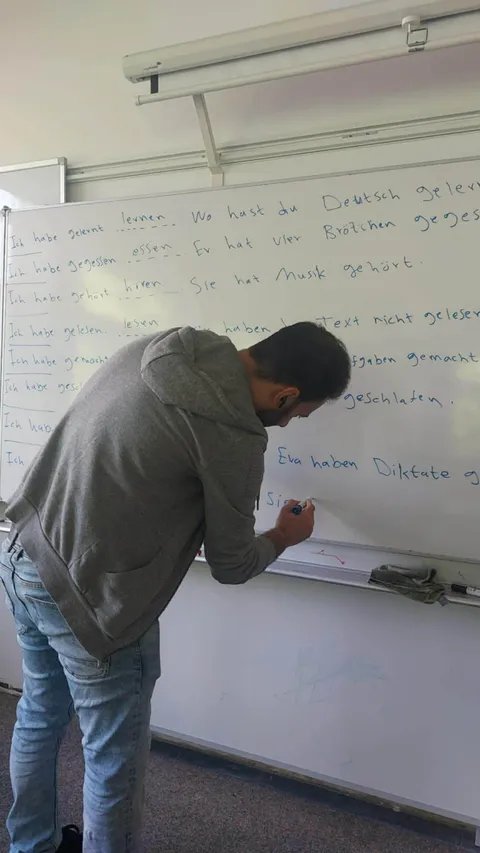 Ich habe gelernt lernen Wo hast du Deutsch geler
Ich habe gegessen essen Er hat vier Brötchen geges
Ich habe gehört hören Sie hat Musik gehört.
Ich habe gelesen lesen haben Text nicht gelesen
Ich habe gemacht gemacht
Ich habe geschlafen.
Ich hab
Ich Eva haben Diktate g
Sie